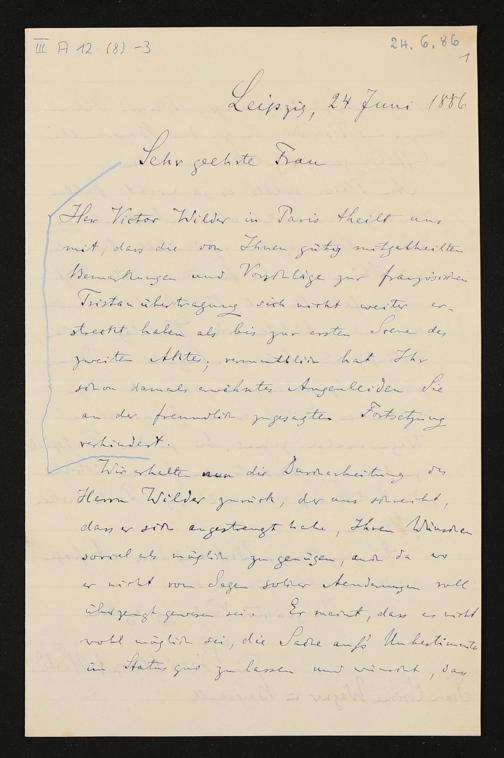 III A 12 (8) -3
24.6.86
1
Leipzig, 24 Juni 1886
Sehr geehrte Frau
Herr Victor Wilder in Paris theilt uns
mit, dass die von Ihnen gütig mitgetheilten
Bemerkungen und Vorschläge zur französischen
Tristanübertragung sich nicht weiter er-
streckt haben als bis zur ersten Scene des
zweiten Aktes; vermuthlich hat Ihr
schon damals erwähntes Augenleiden Sie
an der freundlich zugesagten Fortsetzung
verhindert.
Wir erhalten nun die Durcharbeitung des
Herrn Wilder zurück, der uns schreibt,
dass er sich angestrengt habe, Ihren Wünschen
soviel als möglich zu genügen, auch da wo
er nicht vom Segen solcher Aenderungen voll
überzeugt gewesen sei. Er meint, dass es nicht
wohl möglich sei, die Sache auf's Unbestimmte
im Status quo zu lassen und wünscht, dass